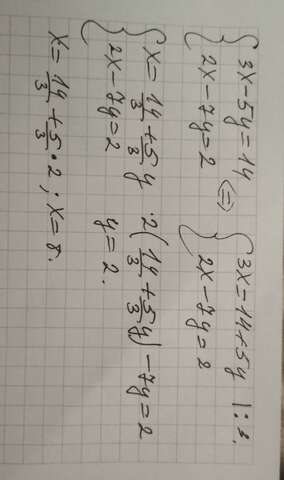 { 3x-5y=14
{ 2x-7y=2 <=>
{ 3x=14+5y |:3.
{ 2x-7y=2
{ x=14/3+5/3y
{ 2x-7y=2
2(14/3+5/3y)-7y=2
y=2.
x=14/3+5/3·2; x=8.